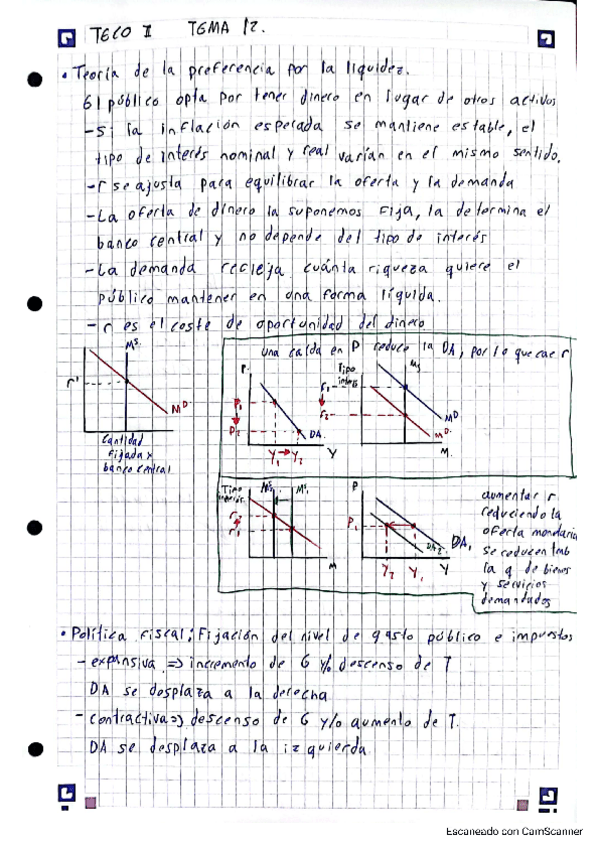 TECO II TEMA 12.
• Teoría de la preferencia por la liquidez.
El público opta por tener dinero en lugar de otros activos
- Si la inflación esperada se mantiene estable, el
tipo de interés nominal y real varían en el mismo sentido.
- r se ajusta para equilibrar la oferta y la demanda
- La oferta de dinero la suponemos fija, la determina el
banco central y no depende del tipo de interés
- La demanda refleja cuánta riqueza quiere el
público mantener en una forma líquida.
- r es el coste de oportunidad del dinero
MS.
r'
MD
Cantidad
fijada x
banco central
una caída en P reduce la DA, por lo que cae r
P.
P1
P2
DA.
Y1 → Y2
Y
Tipo
interés
r1
r2
MS
MD
MD.
M.
Tipo
interés
MS2
MS1
r2
r1
M
P
P1
DA2
DA1
Y2
Y1
Y
aumentar r
reduciendo la
oferta monetaria
se reducen tamb
la q de bienes
y servicios
demandados
• Política fiscal: Fijación del nivel de gasto público e impuestos
- expansiva => incremento de G y/o descenso de T
DA se desplaza a la derecha
- contractiva => descenso de G y/o aumento de T.
DA se desplaza a la izquierda
Escaneado con CamScanner